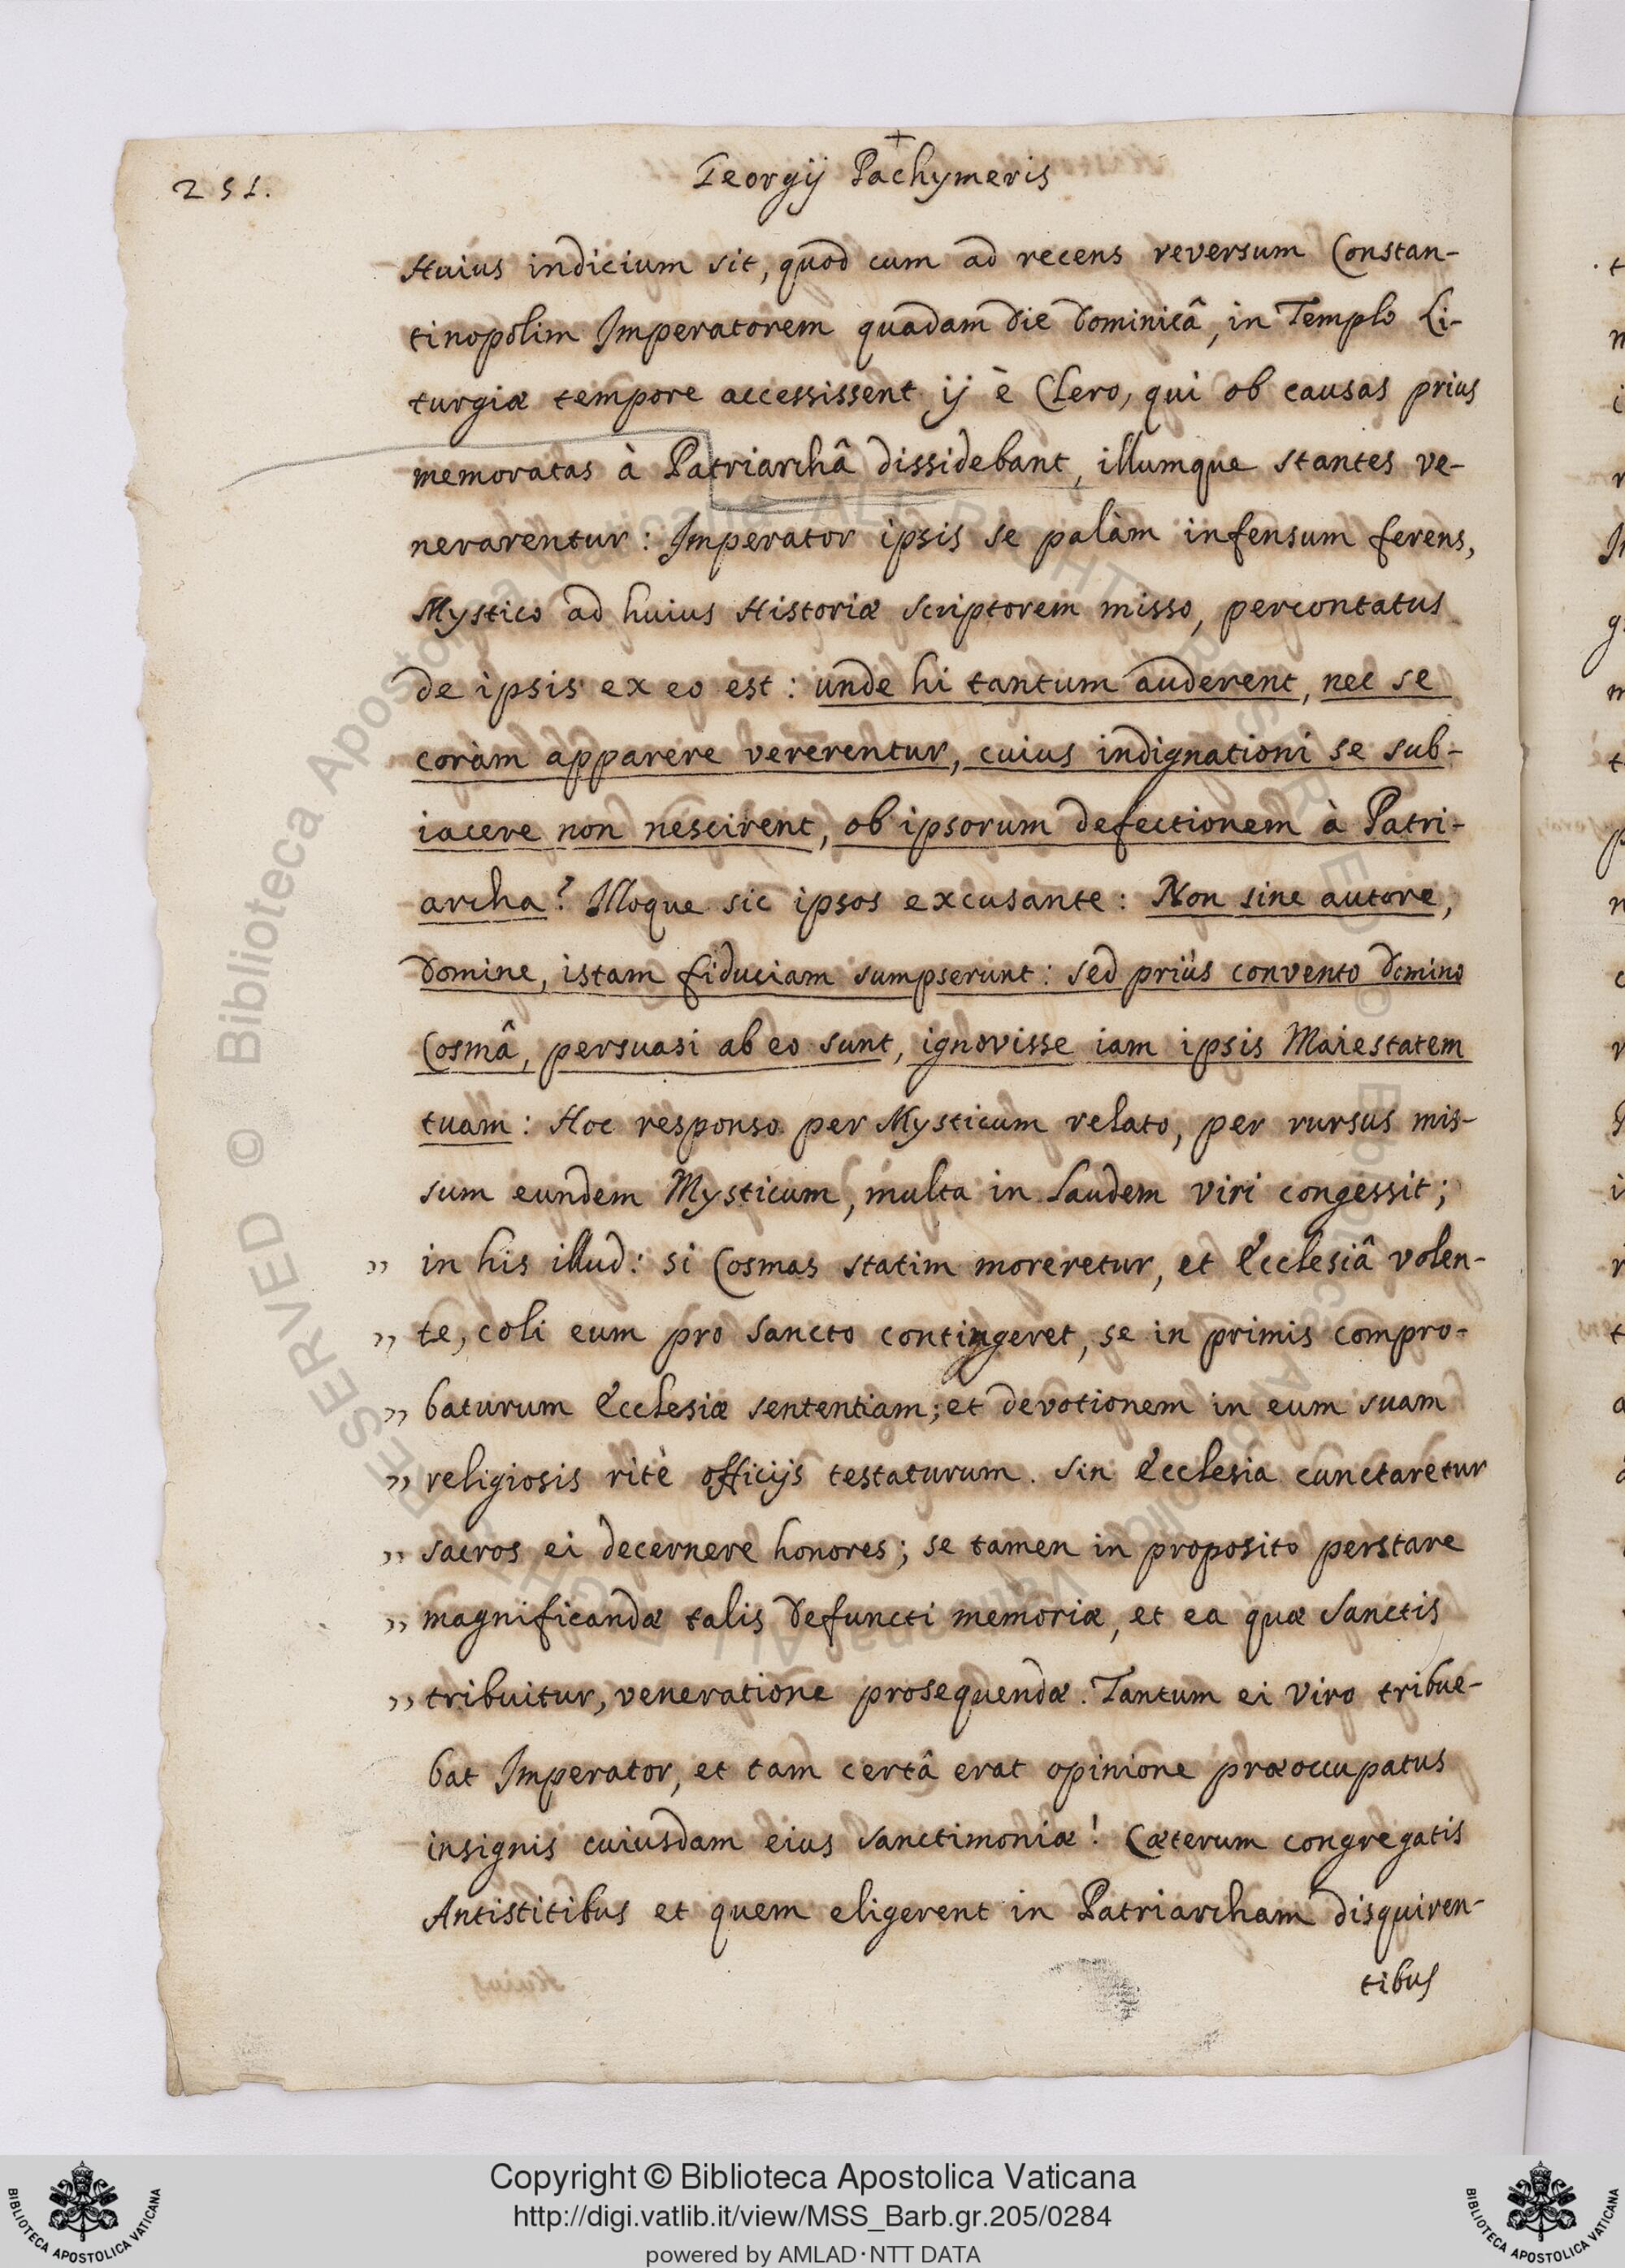 +
251.
Georgij Pachymeris
Huius indicium sit, quod cum ad recens reversum Constan-
tinopolim Imperatorem quadam die Dominicâ, in Templo Li-
turgiæ tempore accessissent ij è Clero, qui ob causas prius
memoratas à Patriarchâ dissidebant, illumque stantes ve-
nerarentur: Imperator ipsis se palàm infensum ferens,
Mystico ad huius Historiæ scriptorem misso, percontatus
de ipsis ex eo est: unde hi tantum auderent, nec se
coràm apparere vererentur, cuius indignationi se sub-
iacere non nescirent, ob ipsorum defectionem à Patri-
archa? Illoque sic ipsos excusante: Non sine autore,
Domine, istam fiduciam sumpserunt: sed priùs convento Domino
Cosmâ, persuasi ab eo sunt, ignovisse iam ipsis Maiestatem
tuam: Hoc responso per Mysticum relato, per rursus mis-
sum eundem Mysticum, multa in laudem viri congessit;
,, in his illud: si Cosmas statim moreretur, et Ecclesiâ volen-
,, te, coli eum pro sancto contingeret, se in primis compro-
,, baturum Ecclesiæ sententiam; et devotionem in eum suam
,, religiosis ritè officijs testaturum. Sin Ecclesia cunctaretur
,, sacros ei decernere honores; se tamen in proposito perstare
,, magnificandæ talis Defuncti memoriæ, et ea quæ Sanctis
,, tribuitur, veneratione prosequendæ. Tantum ei viro tribue-
bat Imperator, et tam certâ erat opinione præoccupatus
insignis cuiusdam eius sanctimoniæ! Cæterum congregatis
Antistitibus et quem eligerent in Patriarcham disquiren-
tibus
Copyright © Biblioteca Apostolica Vaticana
http://digi.vatlib.it/view/MSS_Barb.gr.205/0284
powered by AMLAD·NTT DATA
BIBLIOTECA APOSTOLICA VATICANA
BIBLIOTECA APOSTOLICA VATICANA